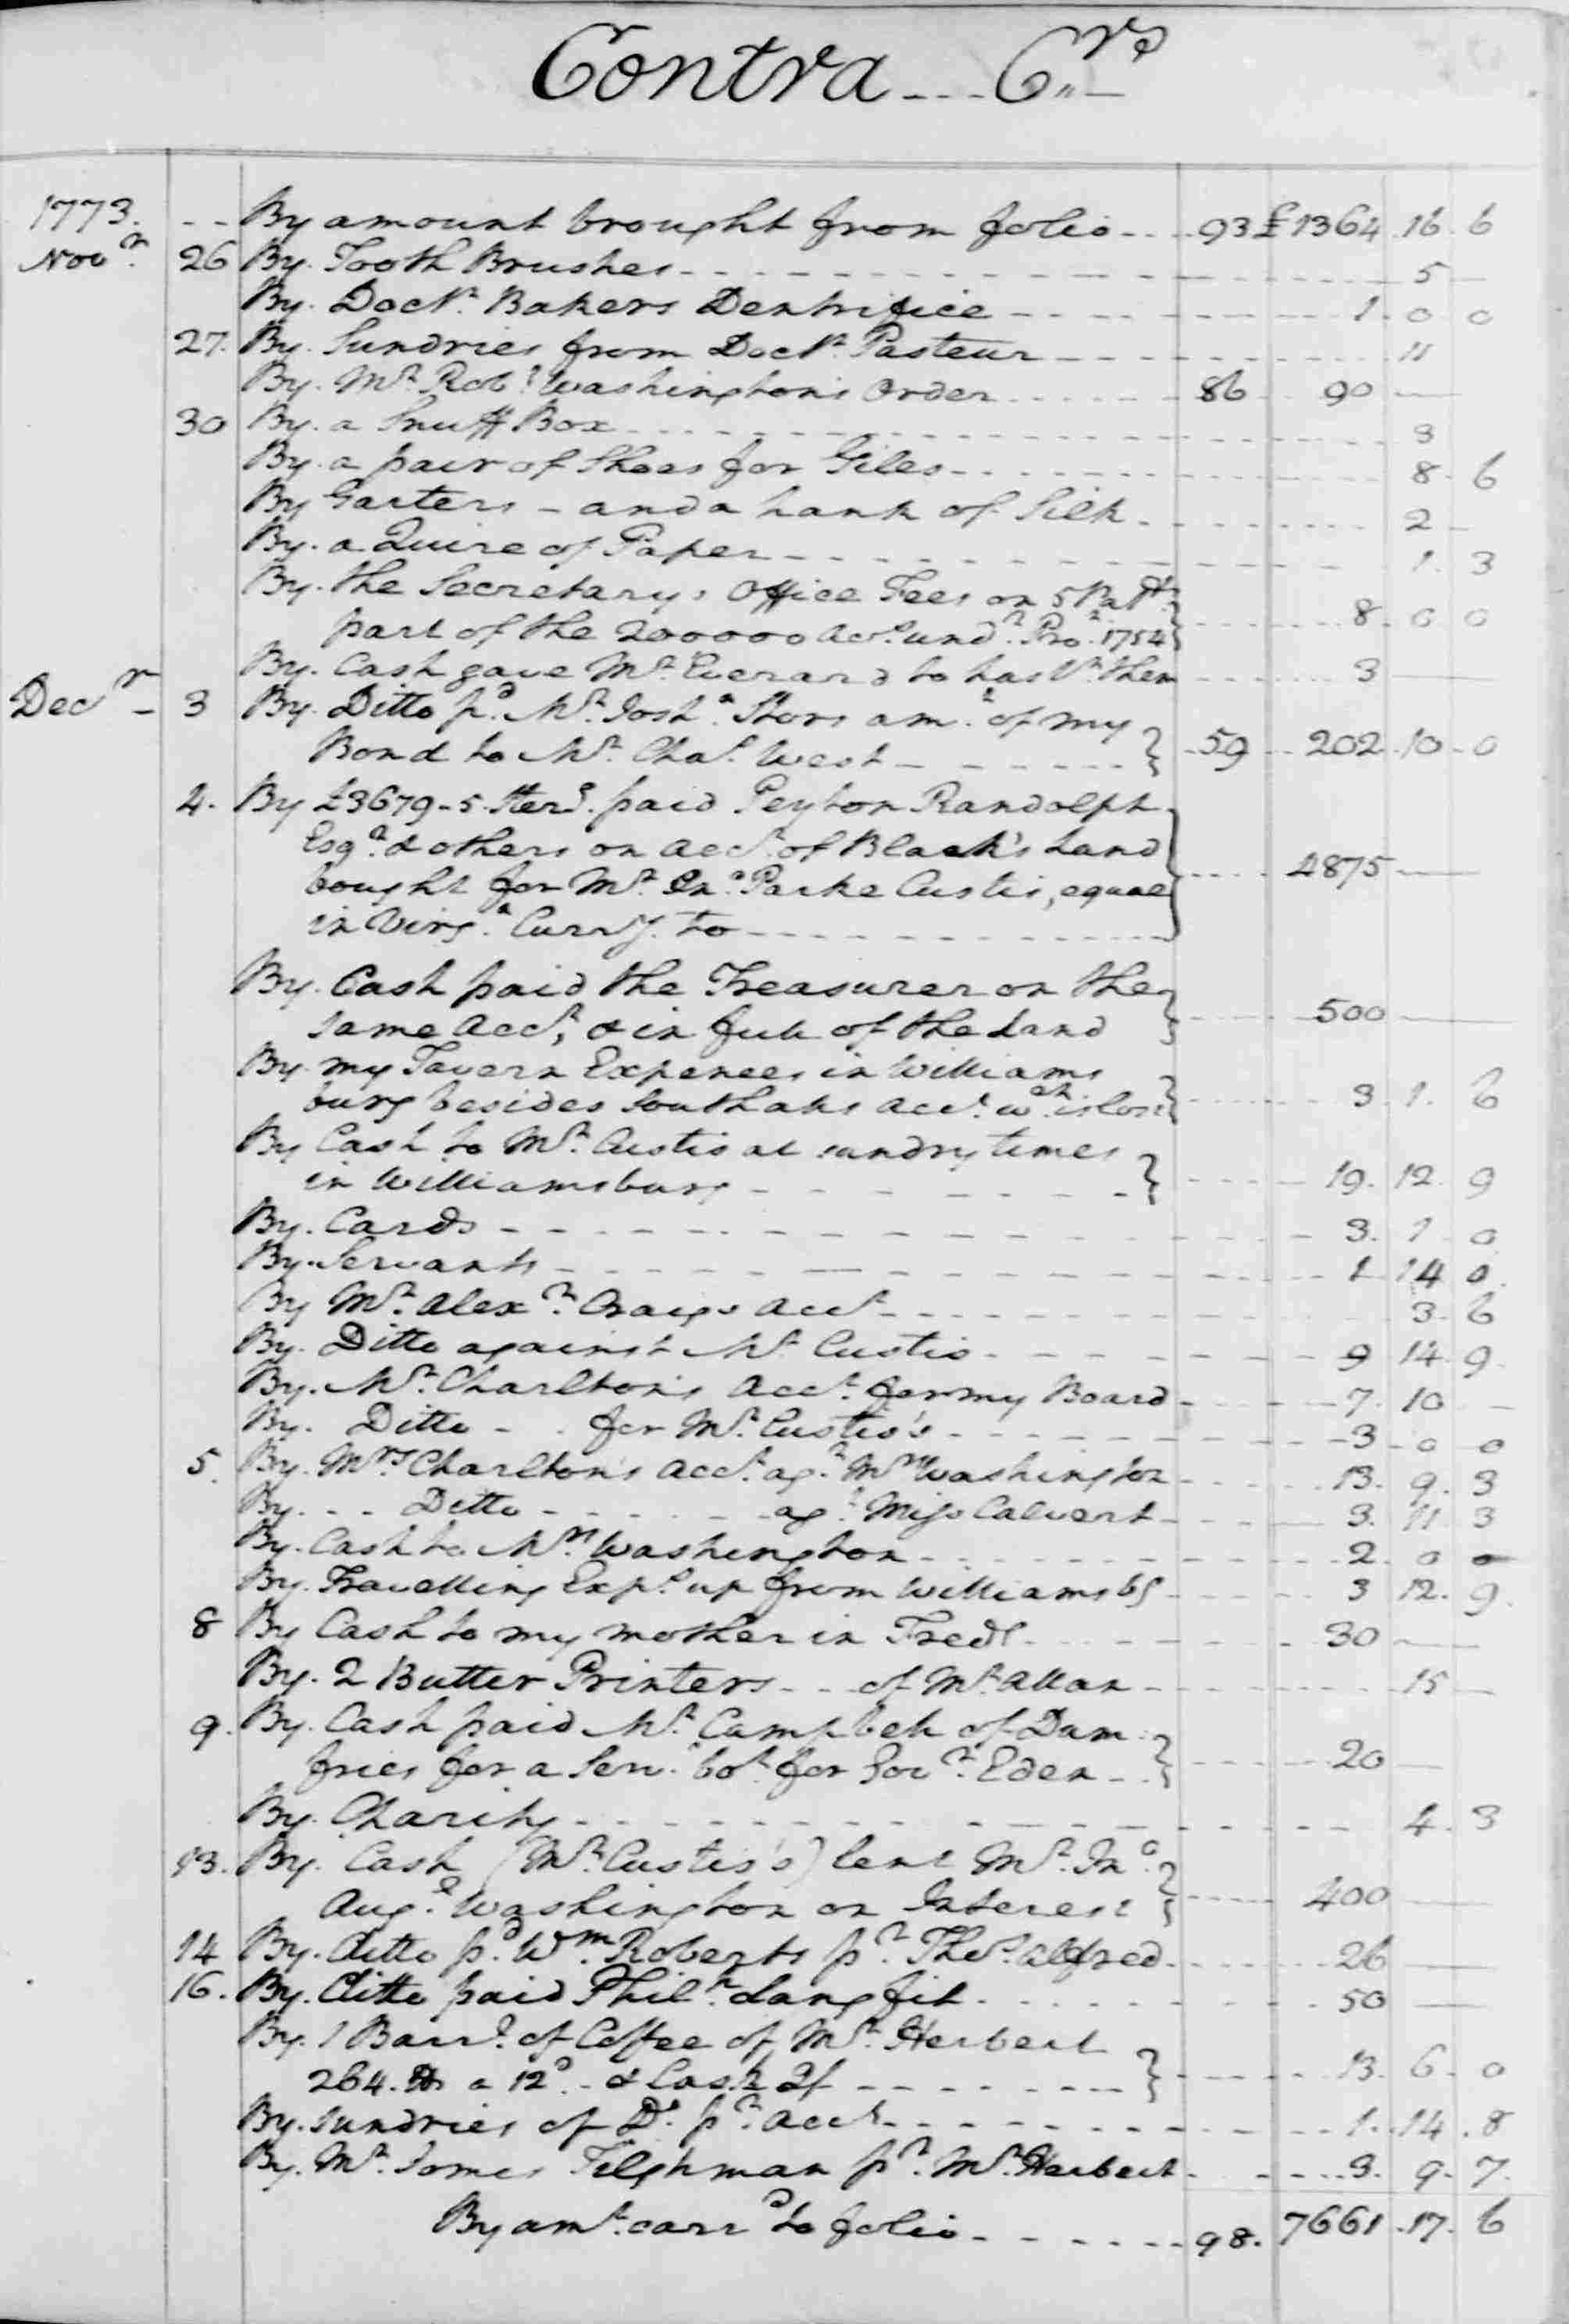 Contra - - - Crs
1773. - - By amount brought from folio - - - 93 £1364. 16. 6
Novr. 26 By. Tooth Brushes - - - 5 —
By. Doctr. Bakers Dentrifice - - - 1. 0 0
27. By. Sundries from Doctr. Pasteur - - - 11
By. Mr. Robt. Washington's Order - - - 86 90 —
30 By. a Snuff Box - - - 3
By. a pair of Shoes for Giles - - - 8. 6
By Garters - and a hank of Silk - - - 2 —
By. a Quire of Paper - - - 1. 3
By. the Secretarys Office Fees on 5 Patts.
part of the 200000 Acs. undr. Pron. 1754 } - - - 8. 0 0
By. Cash gave Mr. Everard to hastn. them - - - 3 —
Decr - 3 By. Ditto pd. Mr. Josha. Storrs amt. of my
Bond to Mr. Chas. West - - - } 59 202. 10 - 0
4. By £3679 - 5 Sterg. paid Peyton Randolph
Esqr. & others on acct. of Black's Land
bought for Mr. Jno. Parke Custis, equal
in Virga. Curry. to - - - } 4875 —
By. Cash paid the Treasurer on the
same Acct, & in full of the Land } 500 —
By my Tavern Expences in Williams
burg besides Southalls acct. wch. is lost } 3. 1. 6
By Cash to Mr. Custis at sundry times
in Williamsburg - - - } 19. 12. 9
By. Cards - - - 3. 1. 0
By. Servants - - - 1 14 0.
By Mr. Alexr. Craigs acct - - - 3. 6
By. Ditto against Mr. Custis - - - 9 14. 9.
By. Mr. Charlton's Acct. for my Board - - - 7. 10 —
By. Ditto - - for Mr. Custis's - - - 3 - 0 - 0
5. By. Mrs. Charlton's Acct. agt. Mrs. Washington - - - 13. 9. 3
By. - - Ditto - - - agt. Miss Calvert - - - 3. 11 3
By. Cash to Mrs. Washington - - - 2. 0 0
By. Travelling Exps. up from Williamsbg - - - 3 12. 9.
8 By Cash to my mother in Fredg. - - - 30 —
By. 2 Butter Printers - - of Mr. Allan - - - 15 —
9. By. Cash paid Mr. Campbell of Dum
fries for a Servt. bot. for Govr. Eden - - } 20 —
By. Charity - - - 4. 3
13. By. Cash (Mr. Custis's) lent Mr. Jno.
Auge. Washington on Interest } 400 —
14 By. Ditto pd. Wm. Roberts pr. Thos. Alfred - - - 26 —
16. By. Ditto paid Philr. Langfit - - - 50 —
By. 1 Barrl. of Coffee of Mr. Herbert
264. lb a 12d. - & Cask 2/ - - - } 13. 6. 0
By. Sundries of Do. pr. Acct. - - - 1. 14. 8
By. Mr. James Tilghman pr. Mr. Herbert - - - 3. 9. 7.
By amt. carrd to folio - - - 98. 7661. 17. 6